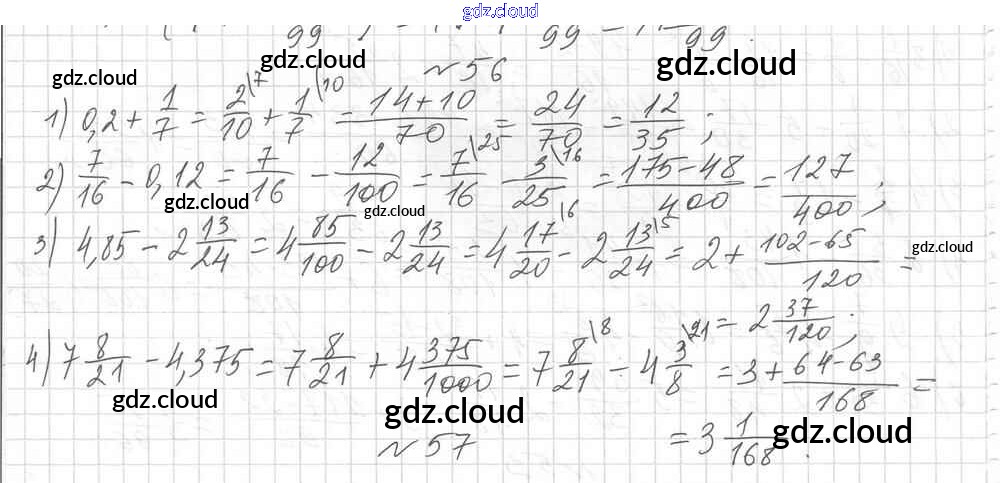 gdz.cloud
99 99 99
gdz.cloud gdz.cloud gdz.cloud
№56
1) 0,2 + 1/7 = 2/10 \7 + 1/7 \10 = (14+10)/70 = 24/70 = 12/35 ;
2) 7/16 - 0,12 = 7/16 - 12/100 = 7/16 \25 3/25 \16 = (175-48)/400 = 127/400 ;
gdz.cloud gdz.cloud gdz.cloud
3) 4,85 - 2 13/24 = 4 85/100 - 2 13/24 = 4 17/20 \6 - 2 13/24 \5 = 2 + (102-65)/120 =
= 2 37/120 ;
4) 7 8/21 - 4,375 = 7 8/21 + 4 375/1000 = 7 8/21 \8 - 4 3/8 \21 = 3 + (64-63)/168 =
gdz.cloud gdz.cloud gdz.cloud
= 3 1/168 .
№57